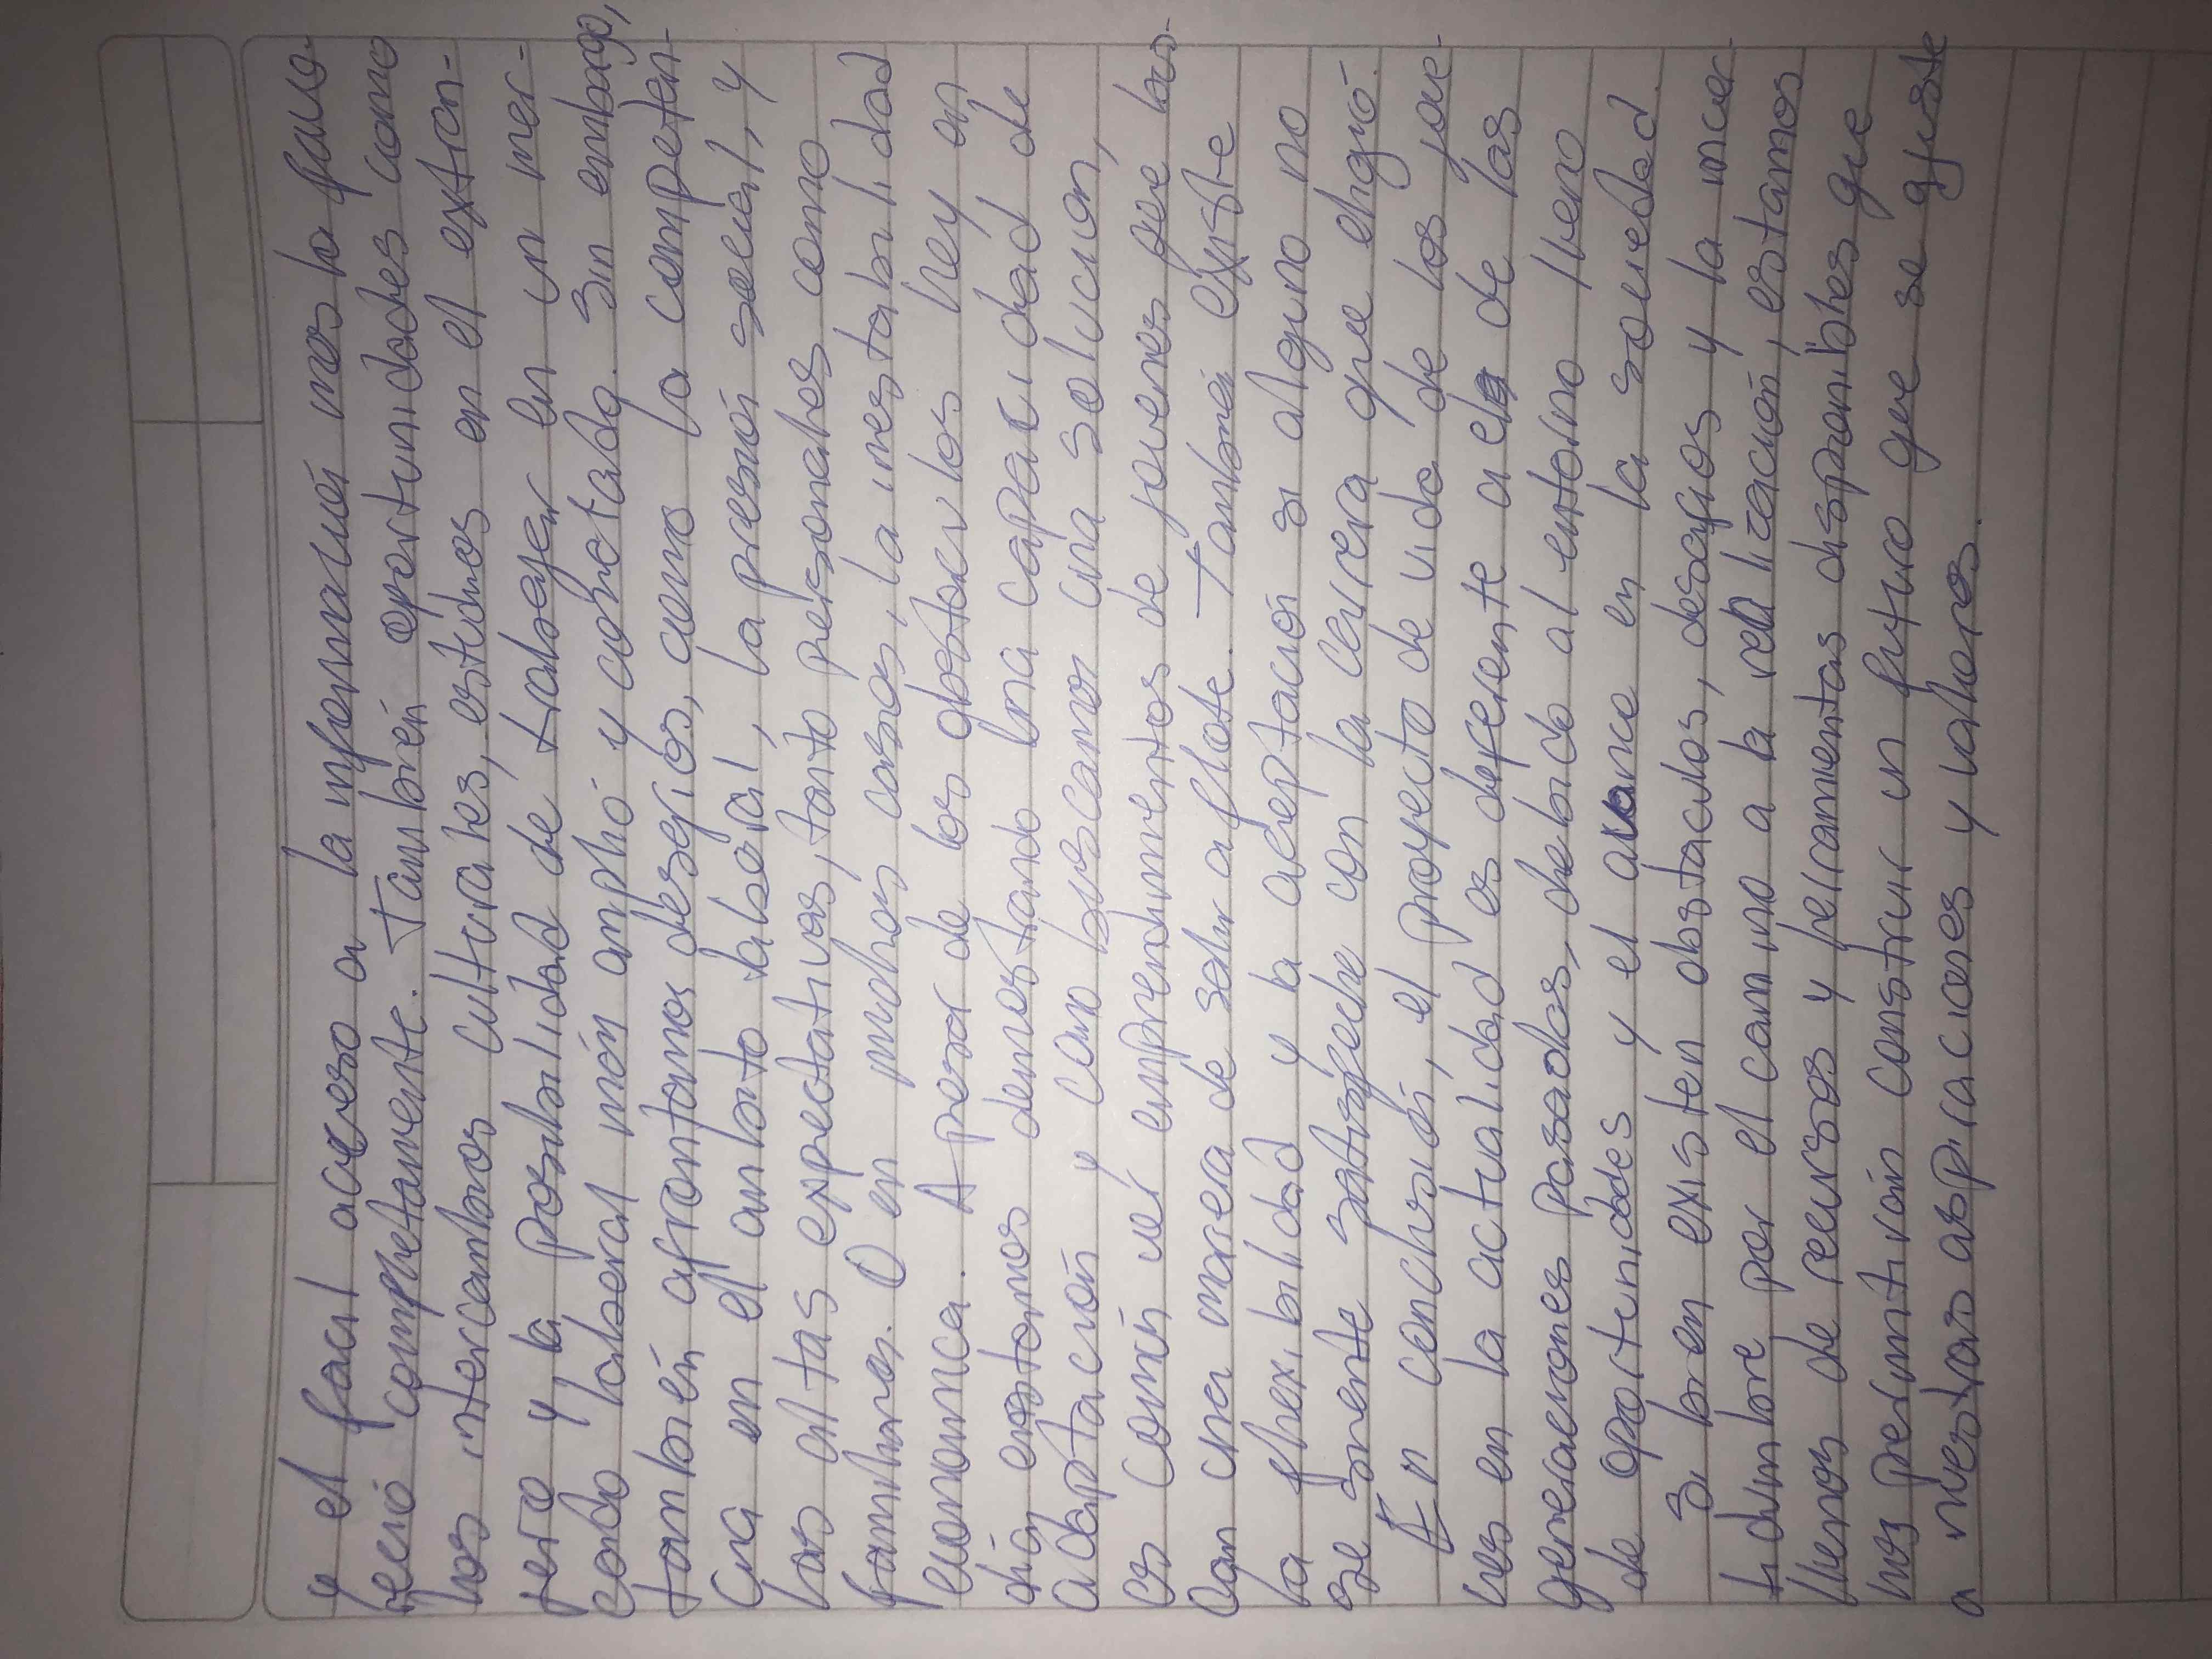 y el facil acceso a la información nos la favo-
reció completamente. También oportunidades como
los intercambios culturales, estudios en el extran-
jero y la posibilidad de trabajar en un mer-
cado laboral más amplio y conectado. Sin embargo,
también afrontamos desafios, como la competen-
cia en el ambito laboral, la presión social, y
las altas expectativas, tanto personales como
familiares. O en muchos casos, la inestabilidad
economica. A pesar de los obstaculos hoy en
día, estamos demostrando una capacidad de
adaptación y como buscamos una solucion,
es común ver emprendimientos de jovenes que bus-
can una manera de salir a flote. También existe
la flexibilidad y la aceptación si alguno no
se siente satisfecho con la carrera que eligió.
En conclusión, el proyecto de vida de los jove-
nes en la actualidad es deferente a la de las
generaciones pasadas, debido al entorno lleno
de oportunidades y el avance en la sociedad.
Si bien existen obstaculos, desafios y la incer-
tidumbre por el camino a la realización, estamos
llenos de recursos y herramientas disponibles que
nos permitirán construir un futuro que se ajuste
a nuestras aspiraciones y valores.